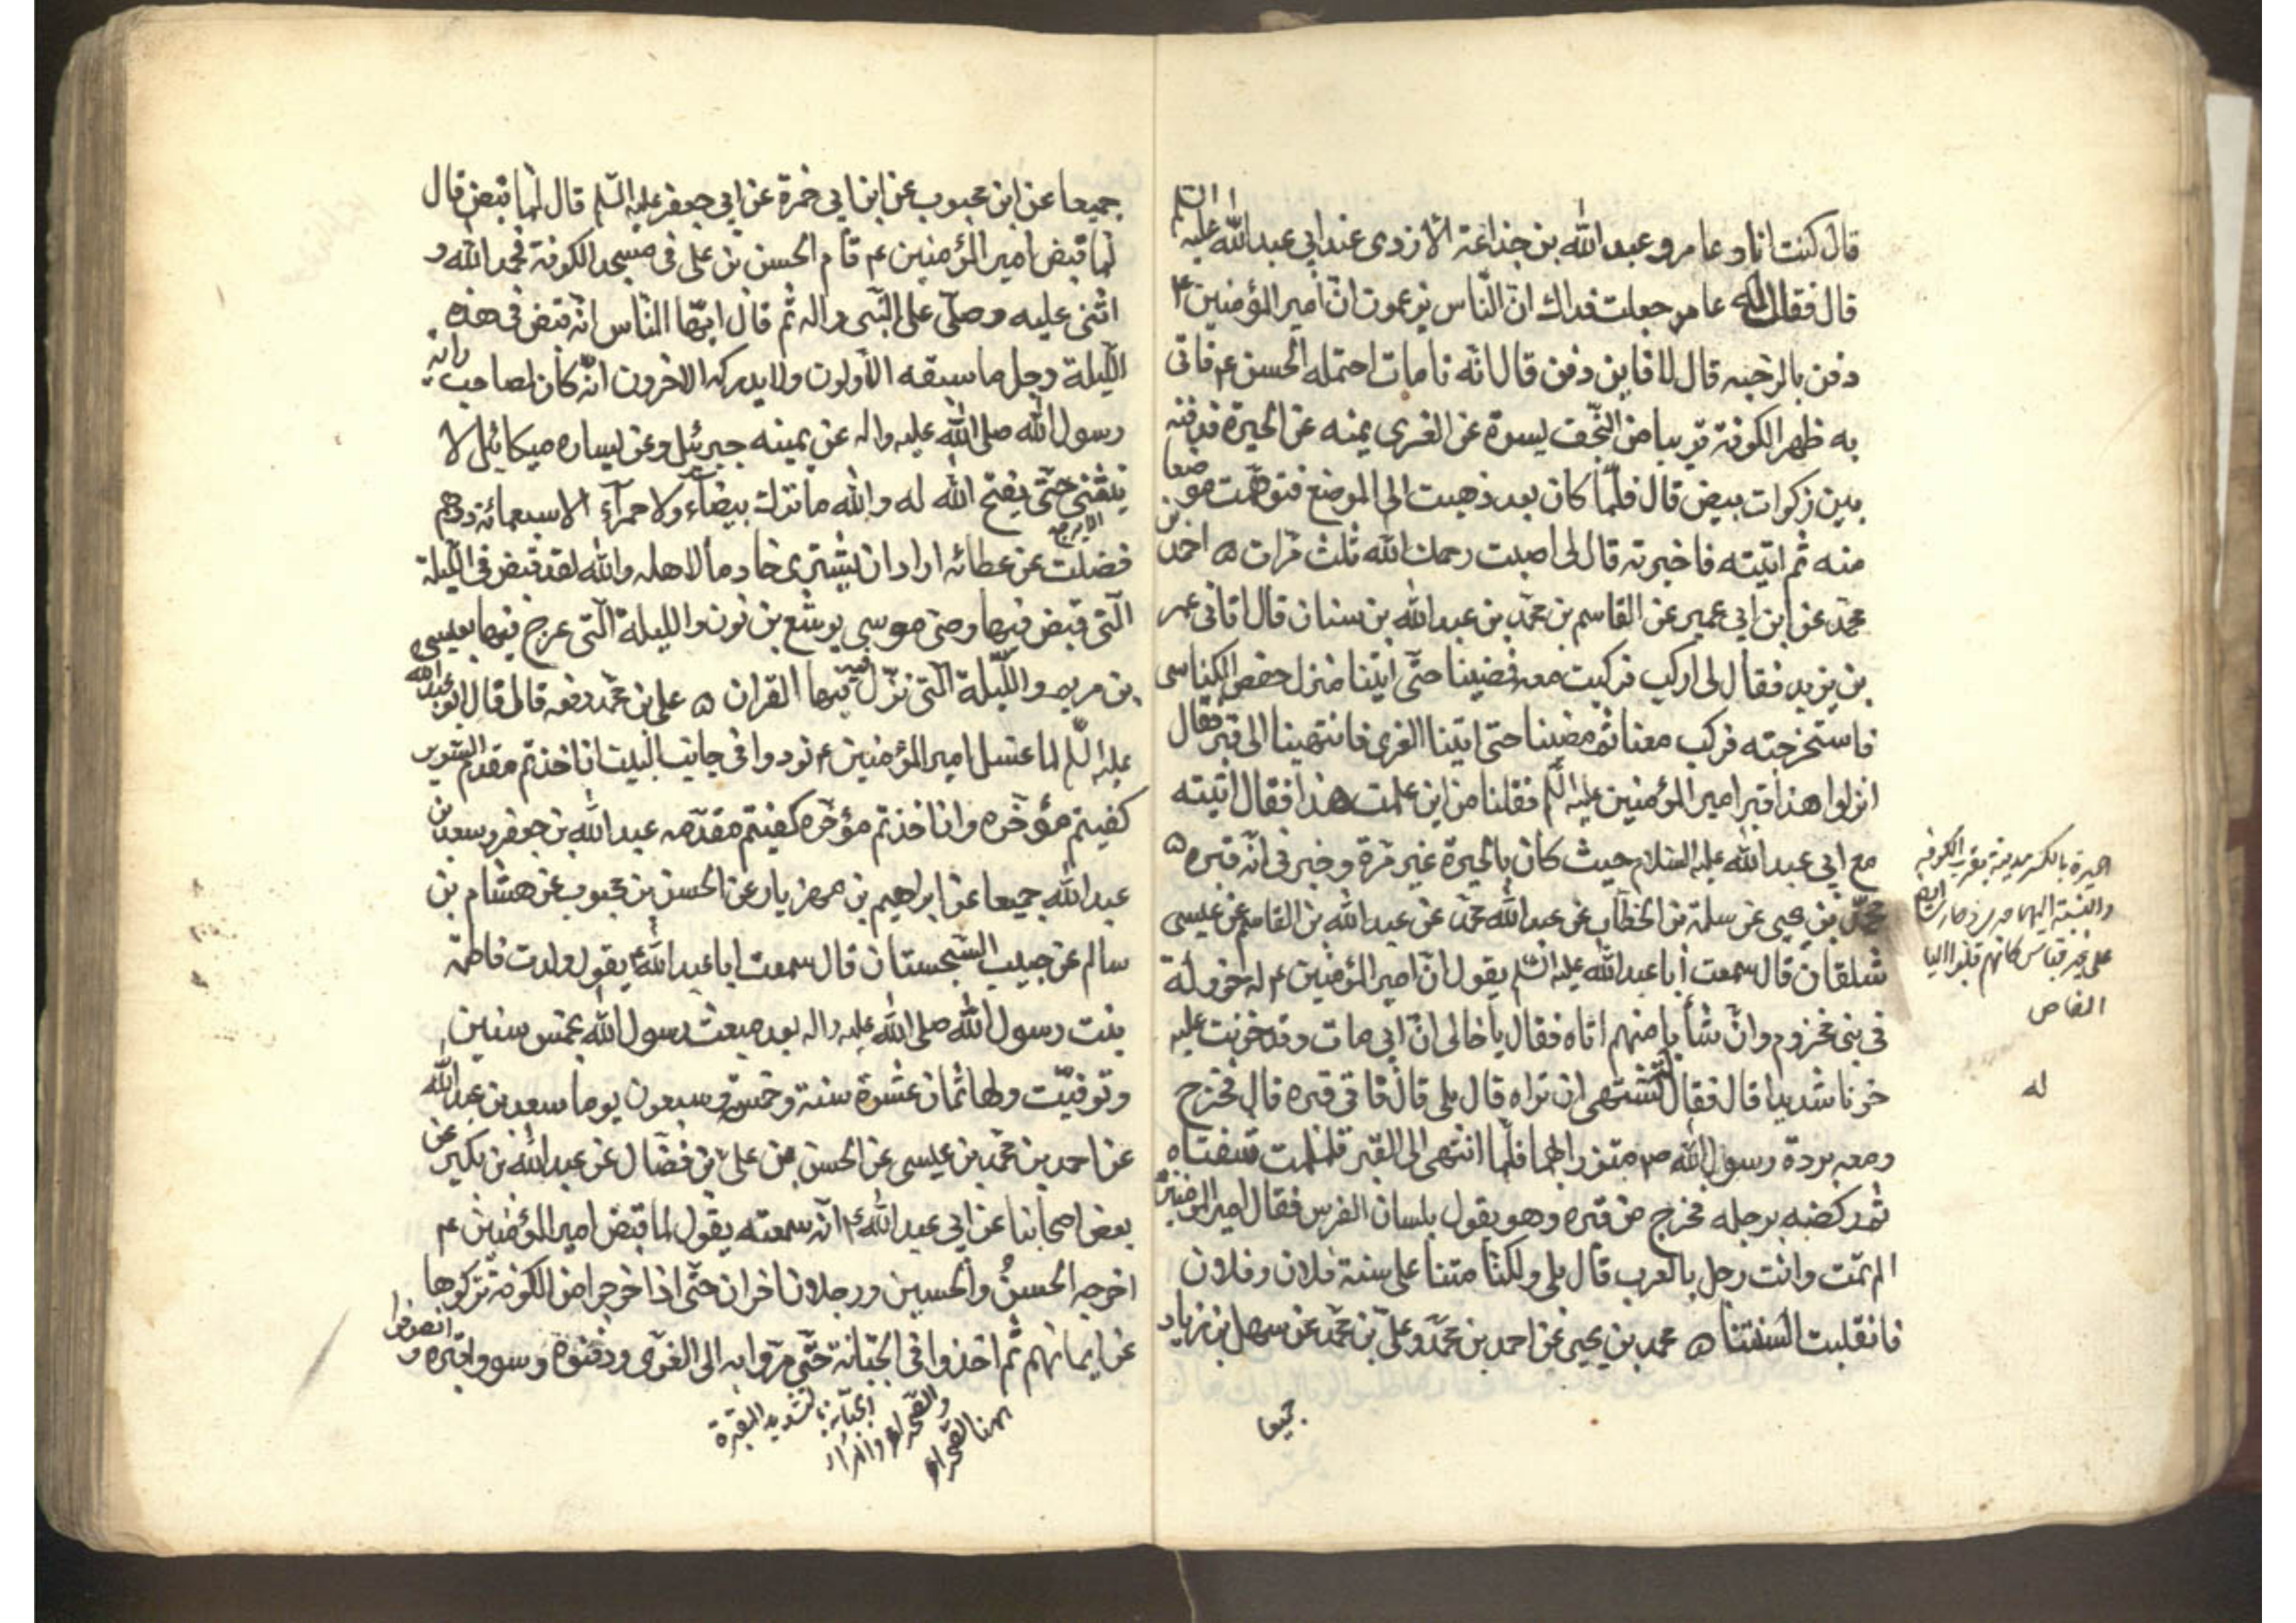 قال كنت انا و عامر و عبد الله بن جذاعة الازدي عند ابي عبد الله عليه السلم
قال فقال له عامر جعلت فداك ان الناس يزعمون ان امير المؤمنين ع
دفن بالرحبه قال لا فاين دفن قال انه نا مات احتمله الحسن ع فاتى
به ظهر الكوفة قريبا من النجف يسرة عن الغرى يمنه عن الحيرة فدفنه
بين زكوات بيض قال فلما كان بعد ذهبت الى الموضع فتوهمت موضعا
منه ثم اتيته فاخبرته قال لى اصبت رحمك الله ثلث مرات ه احمد بن
محمد عن ابن ابي عمير عن القاسم بن محمد بن عبد الله بن سنان قال اتانى عمر
بن يزيد فقال لى اركب فركبت معه فمضينا حتى اتينا منزل حفص الكناسى
فاستخرجته فركب معنا ثم مضينا حتى اتينا الغرى فانتهينا الى قبر فقال
انزلوا هذا قبر امير المؤمنين عليه السلم فقلنا من اين علمت هذا فقال اتيته
مع ابي عبد الله عليه السلام حيث كان بالحيرة غير مرة و خبرنى انه قبره ه
محمد بن يحيى عن سلمة بن الخطاب عن عبد الله محمد عن عبد الله بن القاسم عن عيسى
شلقان قال سمعت أبا عبد الله عليه السلم يقول ان امير المؤمنين ع له خؤولة
فى بنى مخزوم وان شأبا منهم اتاه فقال يا خالى ان ابي مات وقد حزنت عليه
حزنا شديدا قال فقال تشتهى ان تراه قال بلى قال فاتى قبره قال فخرج
ومعه بردة رسول الله ص متزرا بها فلما انتهى الى القبر تلملمت شفتاه
ثم ركضه برجله فخرج من قبره وهو يقول بلسان الفرس فقال امير المومنين
الم تمت وانت رجل بالعرب قال بلى ولكنا متنا على سنة فلان وفلان
فانقلبت السنتنا ه محمد بن يحيى عن احمد بن محمد وعلى بن محمد عن سهل بن زياد
جميعا
الحيرة بالكسر مدينة بقرب الكوفة
والنسبة اليها حيرى وحارى ايضا
على غير قياس كانهم قلبوا اليا
الفا ص
له
جميعا عن ابن محبوب عن ابن ابي حمزة عن ابي جعفر عليه السلم قال لما قبض قال
لما قبض امير المؤمنين ع قام الحسن بن على فى مسجد الكوفة فحمد الله و
اثنى عليه وصلى على النبى واله ثم قال ايها الناس انه قبض فى هذه
الليلة رجل ما سبقه الاولون ولا يدركه الاخرون انه كان لصاحب راية
رسول الله صلى الله عليه واله عن يمينه جبرئيل وعن يساره ميكائيل لا
ينثنى حتى يفتح الله له والله ما ترك بيضاء ولا حمرآء الا سبعمائة درهم
فضلت عن عطائه اراد ان يشترى خادما لاهله والله لقد قبض فى الليلة
التى قبض فيها وصى موسى يوشع بن نون والليلة التى عرج فيها بعيسى
بن مريم والليلة التى نزل فيها القران ه على بن محمد رفعه قال قال ابو عبد الله
عليه السلم لما غسل امير المؤمنين ع نودوا فى جانب البيت ان اخذتم مقدم السرير
كفيتم مؤخره وان اخذتم مؤخره كفيتم مقدمه عبد الله بن جعفر وسعد بن
عبد الله جميعا عن ابراهيم بن مهزيار عن الحسن بن محبوب عن هشام بن
سالم عن حبيب السجستان قال سمعت ابا عبد الله ع يقول ولدت فاطمة
بنت رسول الله صلى الله عليه واله بعد مبعث رسول الله بخمس سنين
وتوفيت ولها ثمان عشرة سنة وخمسة وسبعون يوما سعد بن عبد الله
عن احمد بن محمد بن عيسى عن الحسن بن على بن فضال عن عبد الله بن بكير عن
بعض اصحابنا عن ابي عبد الله ع انه سمعته يقول لما قبض امير المؤمنين ع
اخرجه الحسن والحسين ورجلان اخران حتى اذا خرجوا من الكوفة تركوها
عن ايمانهم ثم اخذوا فى الجبانة حتى مروا به الى الغرى ودفنوه وسووا قبره و انصرفوا
الجبانة بالتشديد المقبرة
والصحراء والمراد
ههنا الصحراء